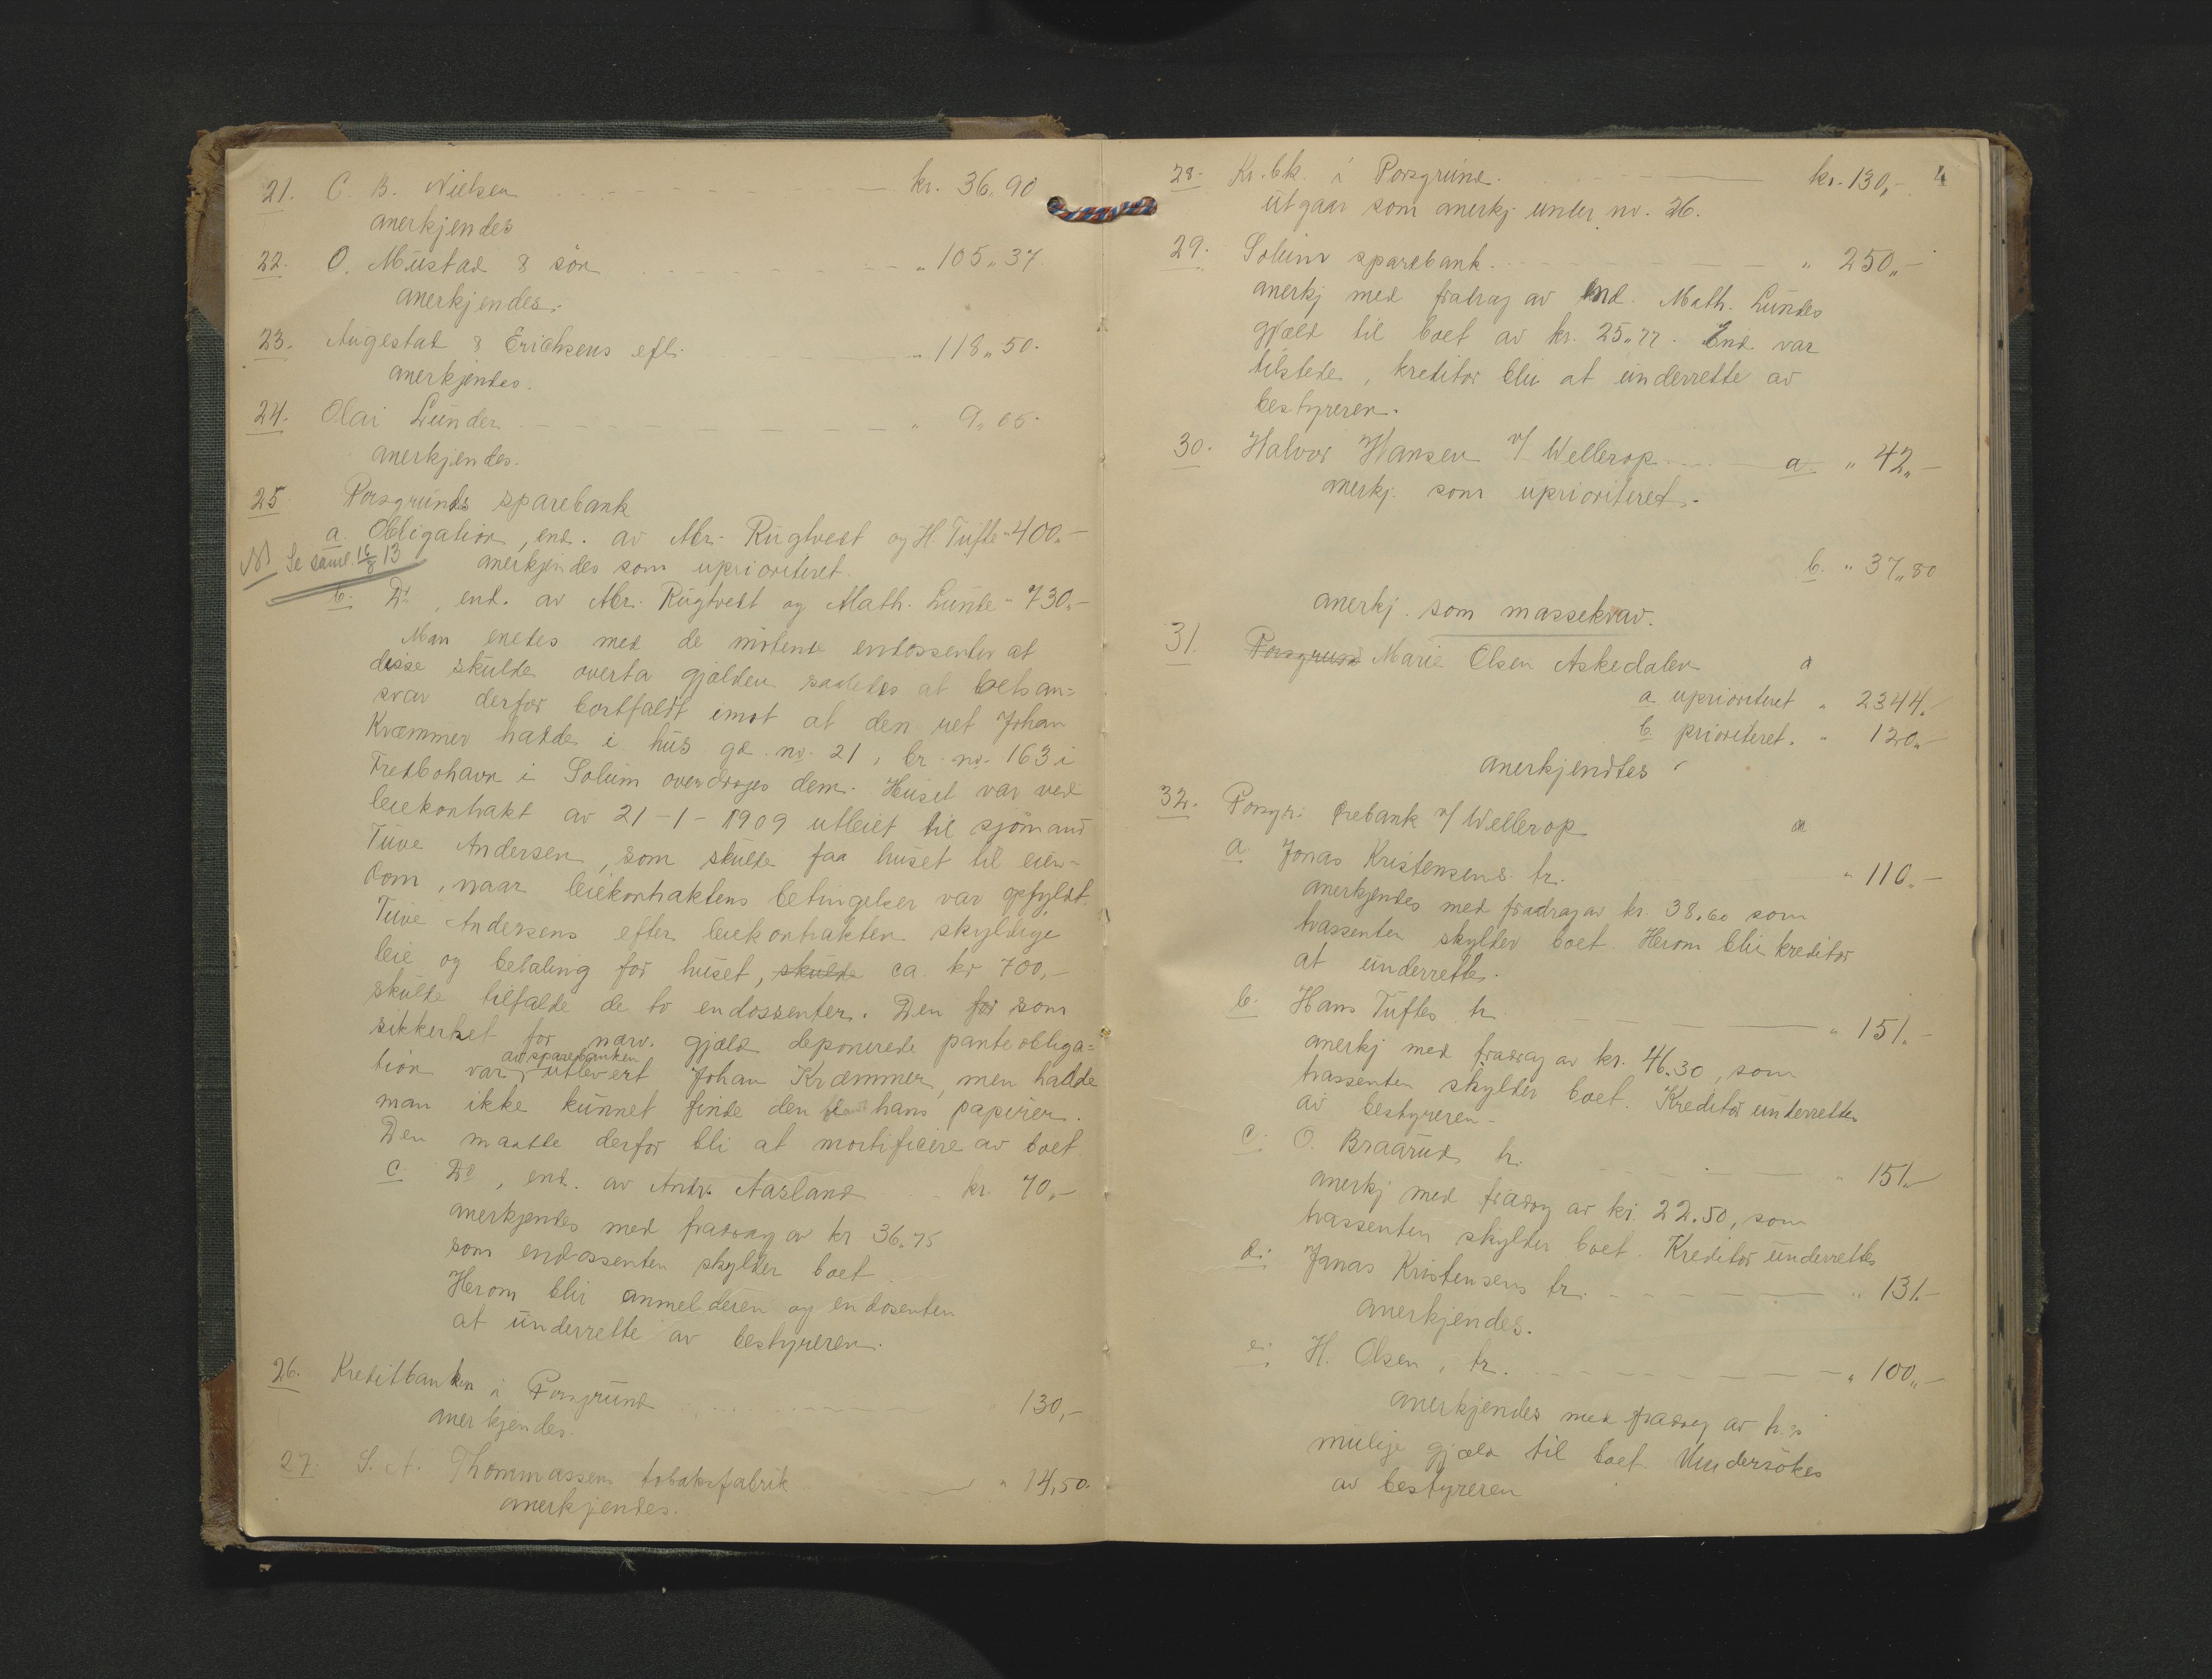 21. C. B. Nielsen kr. 36,90
anerkjendes
22. O. Mustad & søn " 105,,37
anerkjendes.
23. Augestad & Erichsens eftf. " 118,,50.
anerkjendes.
24. Olai Lunder " 9,05.
anerkjendes.
25 Porsgrunds sparebank
a. Obligation, end. av Abr. Rugtvedt og H. Tufte " 400,-
NB Se saml. 16/8 13
anerkjendes som uprioriteret.
b. Do, end. av Abr. Rugtvedt og Math. Lunde " 730,-
Man enedes med de møtende endossenter at
disse skulde overta gjælden saaledes at boets an=
svar derfor bortfaldt imot at den ret Johan
Kræmmer hadde i hus gd. nr. 21, br. nr. 163 i
Fredbohavn i Solum overdroges dem. Huset var ved
leiekontrakt av 21-1-1909 utleiet til sjømand
Tuve Andersen, som skulde faa huset til eien-
dom, naar leiekontraktens betingelser var opfyldt.
Tuve Andersens efter leiekontrakten skyldige
leie og betaling for huset, skulde ca. kr 700,-
skulde tilfalde de to endossenter. Den for som
sikkerhet for nærv. gjæld deponerede panteobliga=
av sparebanken
tion var utlevert Johan Kræmmer, men hadde
man ikke kunnet finde den blandt hans papirer.
Den maatte derfor bli at mortificere av boet
c Do, end. av Andr. Aasland kr. 70,-
anerkjendes med fradrag av kr 36,75
som endossenten skylder boet.
Herom blir anmelderen og endosenten
at underrette av bestyreren.
26. Kreditbanken i Porsgrund 130,-
anerkjendes.
27. S. A. Thommassens tobaksfabrik " 14,50.
anerkjendes.
4
28. Kr.bk. i Porsgrund. kr. 130,-
utgaar som anerkj. under nr. 26.
29. Solum sparebank. " 250,,-
anerkj med fradrag av end. Math. Lundes
gjæld til boet av kr. 25,,77. End var
tilstede, kreditor blir at underrette av
bestyreren.
30. Halvor Hansen v/ Wellerop a. " 42,,-
anerkj. som uprioriteret.
b. " 37,,80
anerkj. som massekrav.
31. Porsgrund Marie Olsen Askedalen a
a uprioriteret " 2344,-
b. prioriteret. " 120,-
anerkjendtes
32. Porsgr. Crebank v/ Wellerop a
a Jonas Kristensens tr. " 110,-
anerkjendes med fradrag av kr. 38,60 som
trassenten skylder boet. Herom blir kreditor
at underrette.
b. Hans Tuftes tr. " 151,-
anerkj med fradrag av kr. 46.30, som
trassenten skylder boet. Kreditor underrettes
av bestyreren.
c. O. Braaruds tr. " 151,-
anerkj med fradrag av kr. 22.50, som
trassenten skylder boet. Kreditor underrettes
d. Jonas Kristensens tr. " 131,-
anerkjendes.
e. H. Olsen, tr. " 100,,-
anerkjendes med fradrag av tr.s
mulige gjæld til boet. Undersøkes
av bestyreren